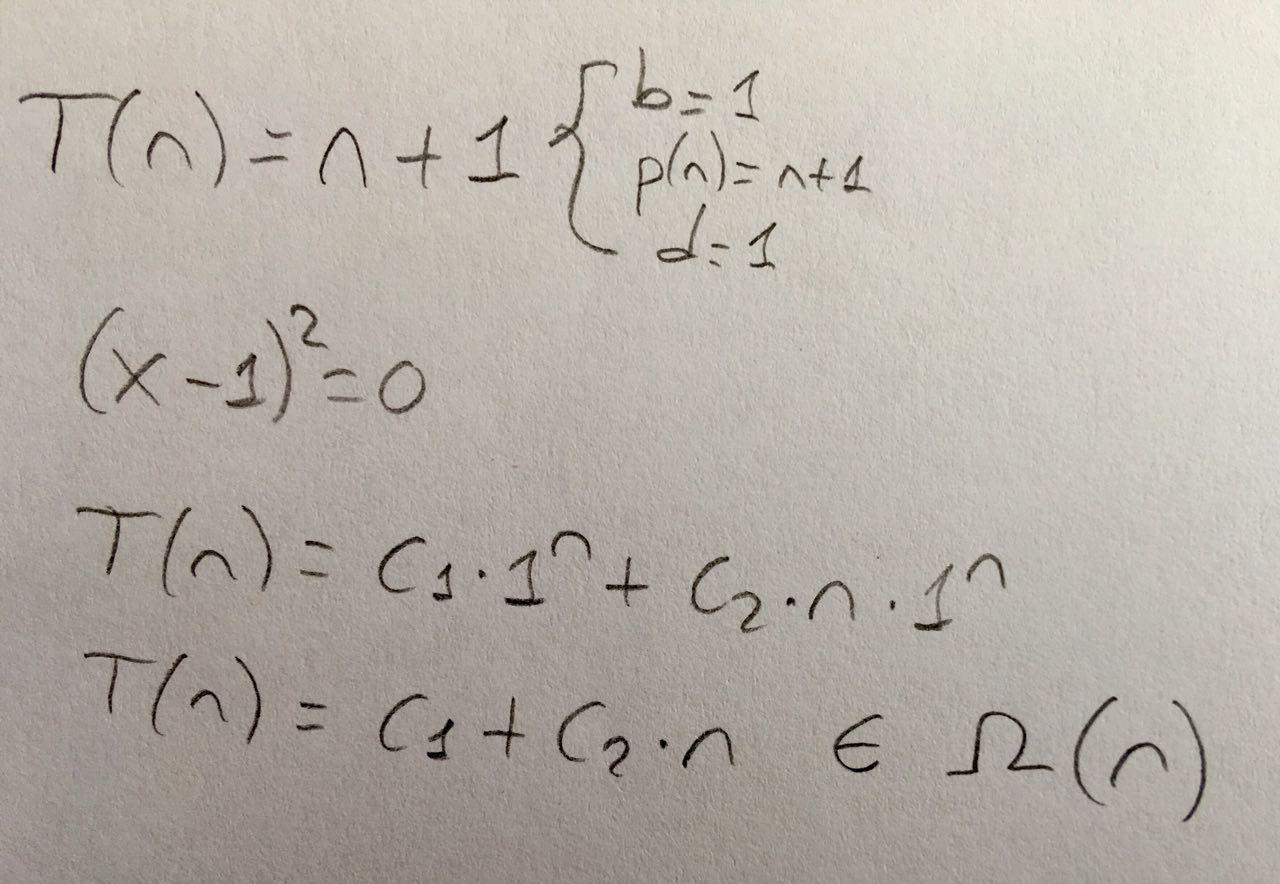 T(n) = n + 1 { b = 1
p(n) = n+1
d = 1
(x - 1)² = 0
T(n) = C₁ · 1ⁿ + C₂ · n · 1ⁿ
T(n) = C₁ + C₂ · n ∈ Ω(n)